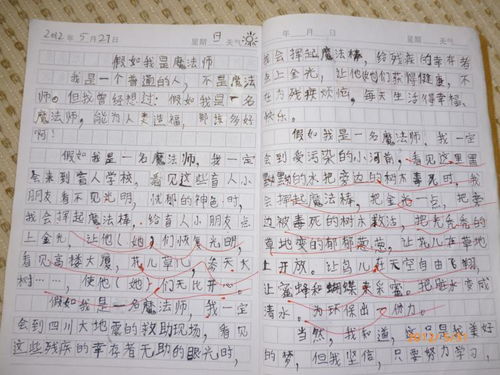 2012年5月27日 星期日 天气
假如我是魔法师
我是一个普通的人，不是魔法
师。但我曾经想过：假如我是一名
魔法师，能为人类造福，那该多好
啊！
假如我是一名魔法师，我一定
会来到盲人学校，看见这些盲人小
朋友看不见光明，忧郁的神色时，
我会挥起魔法棒，给盲人小朋友点
上金光，让他（她）们恢复光明，
看见高楼大厦，花儿草儿，参天大
树……，使他（她）们无比开心。
假如我是一名魔法师，我一定
会到四川大地震的救助现场，看见
这些残疾的幸存者无助的眼光时，
年 月 日 星期 天气
我会挥起魔法棒，给残疾的幸存者
点上金光，让他她们获得健康，不
在为残疾烦恼，每天生活得幸福、
快乐。
假如我是一名魔法师，我一定
会到受污染的小河旁，看见这里黑
黝黝的水把旁边的树木毒死时，我
会挥起魔法棒，把金光一点，把旁
边被毒死的树木救活，把光秃秃的
草地变的郁郁葱葱，让花儿在草地
上开放。让鸟儿在天空自由飞翔，
让蜜蜂和蝴蝶来采蜜。把脏水变成
清水。为环保出一份力。
当然，我知道，这只是我美好
的梦，但我坚信，只要努力学习，